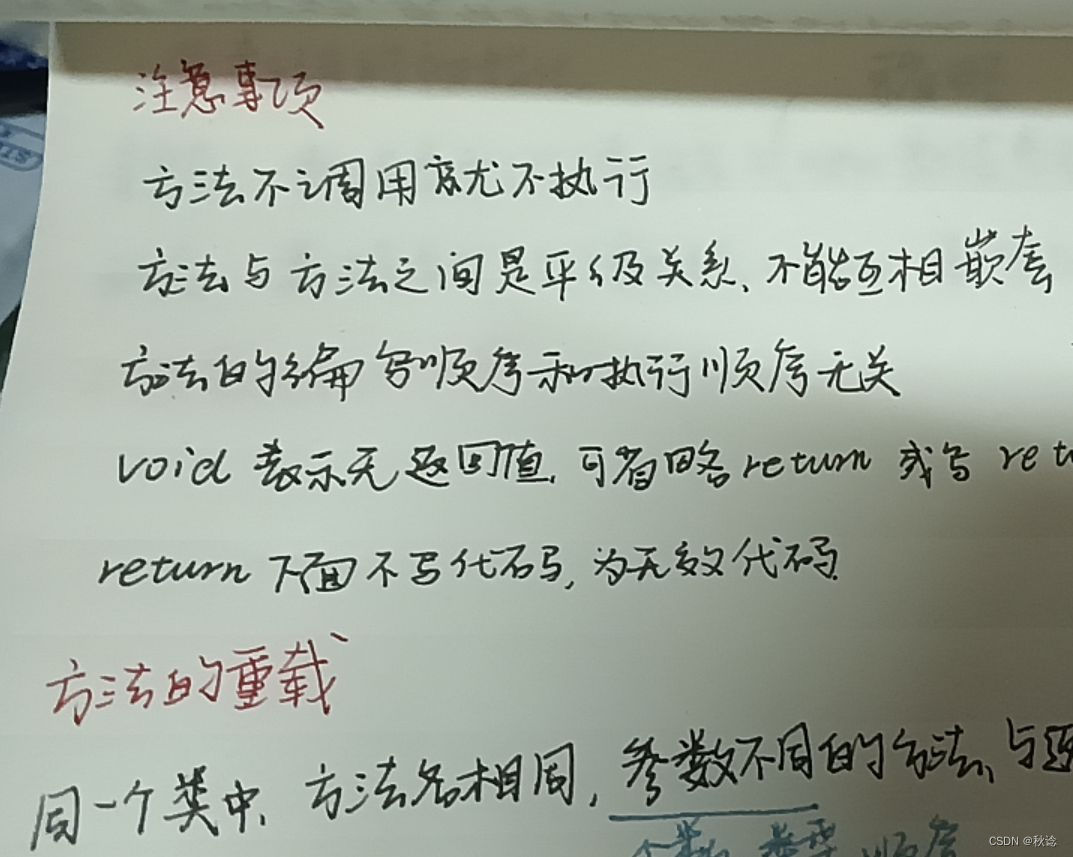 注意事项
方法不调用就不执行
方法与方法之间是平级关系、不能互相嵌套
方法的编写顺序和执行顺序无关
void 表示无返回值,可省略return 或写 retu
return 下面不写代码,为无效代码
方法的重载
同一个类中、方法名相同,参数不同的方法、与返
个数 类型 顺序
CSDN @秋谂